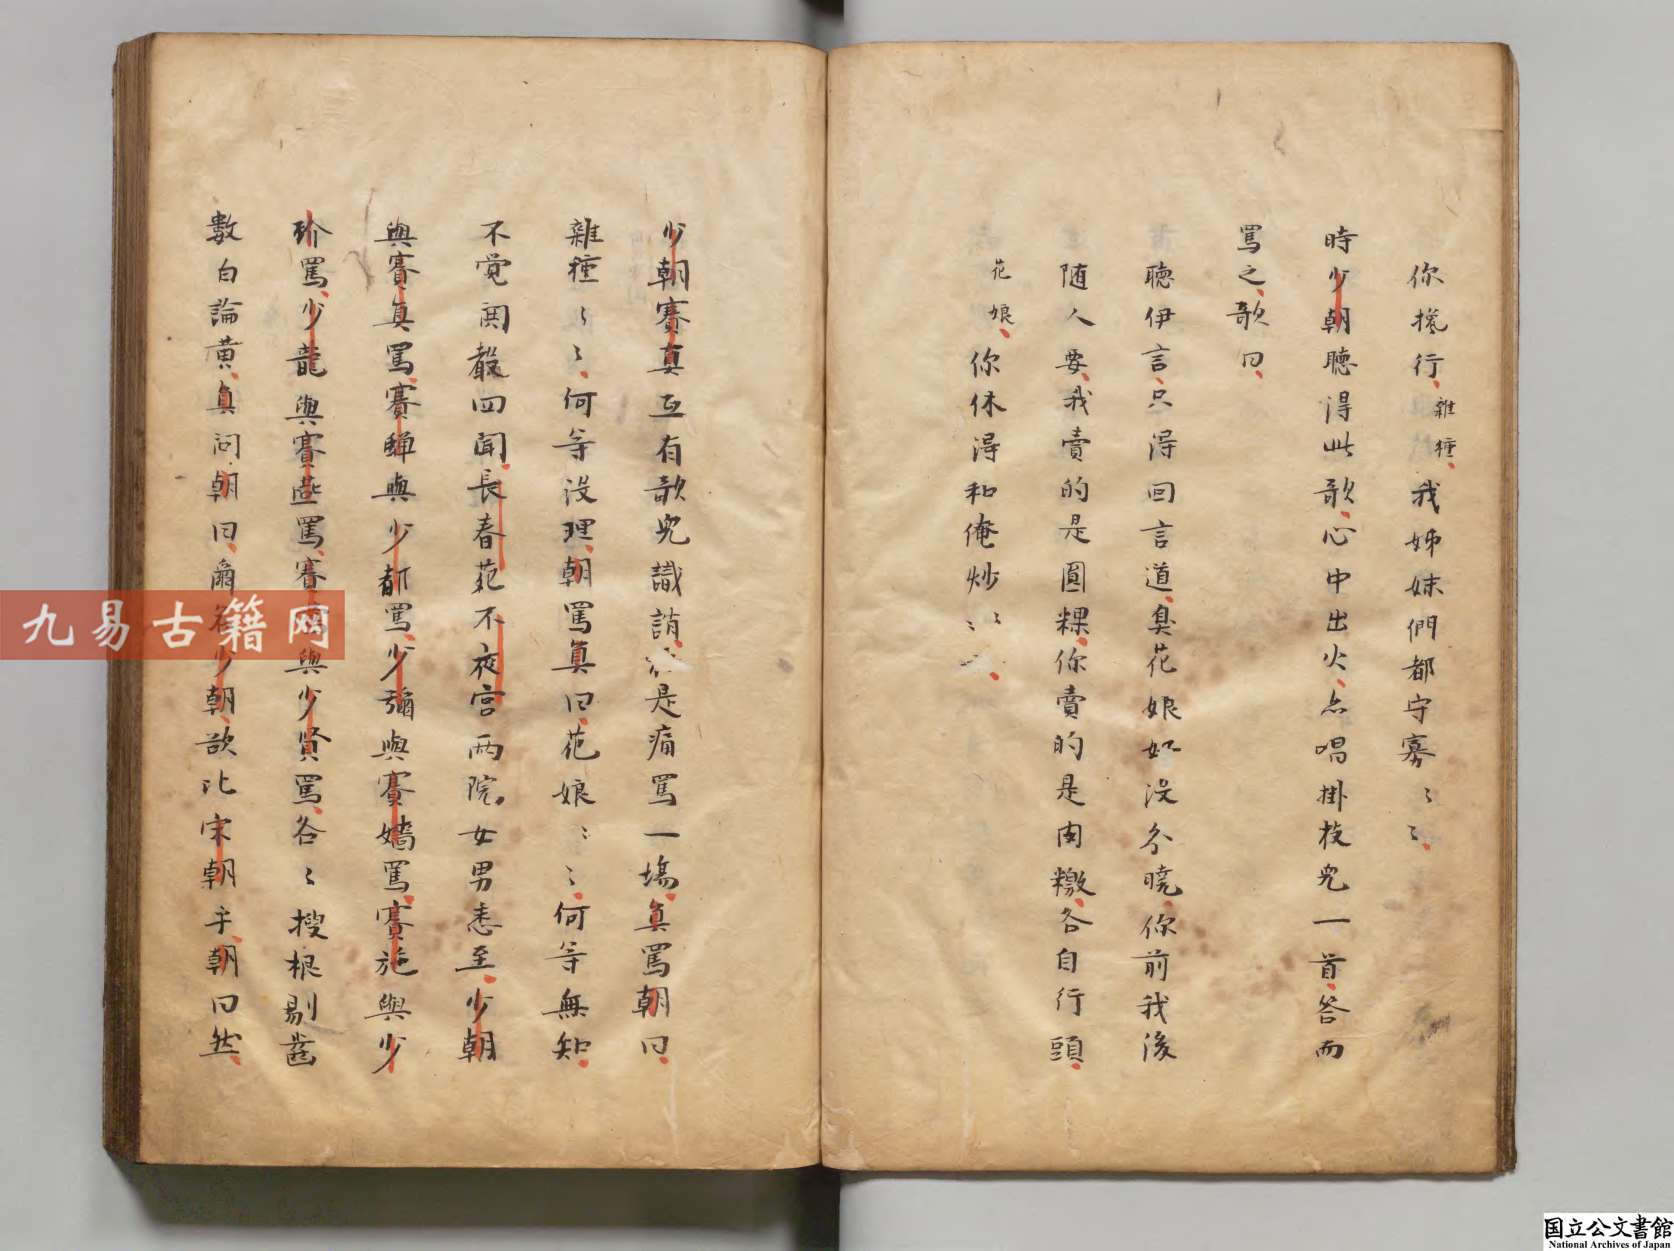 你攙行、雜種、我姊妹們都守寡〻〻、
時少朝聽得此歌、心中出火、亦唱掛枝児一首、答而
罵之、歌曰、
聽伊言、只得回言道、臭花娘如没分曉、你前我後
随人要、我賣的是圓粿、你賣的是肉糤、各自行頭、
花娘、你休得和俺炒〻〻、
少朝賽真互有歌児譏誚、是痛罵一塲、真罵朝曰、
雜種〻〻、何等没理、朝罵真曰、花娘〻〻、何等無知、
不覚閙聲四聞、長春苑不夜宫两院女男悉至、少朝
與賽真罵、賽蟬與少都罵、少彌與賽嬙罵、賽施與少
玠罵、少龍與賽燕罵、賽與少賢罵、各〻搜根剔齒
數白論黄、真问朝曰、爾名少朝、欲比宋朝乎、朝曰然、
九易古籍网
国立公文書館
National Archives of Japan